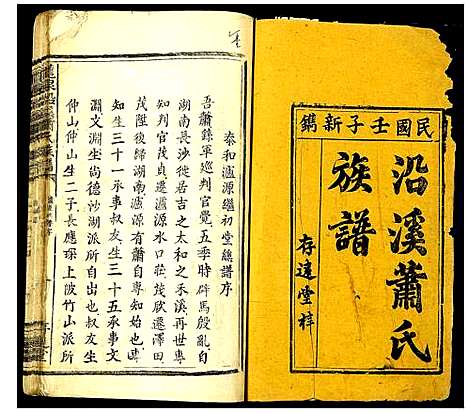 民國壬子新鐫
沿溪蕭氏
族譜
存達堂梓
泰和瀘源繼初堂總譜序
吾蕭錄軍巡判官覺五季時辟馬殷亂自
湖南長沙徙居吉之太和禾溪再世專
知判官茂貞遷瀘源水口莊茂欣遷澤田
茂陞後歸湖南瀘源有蕭自專知始也
知生三十一承事叔友生三十五承事文
淵文淵坐尚德沙湖派所自出也叔友生
仲山仲山生二子長應琛上陂竹山派所